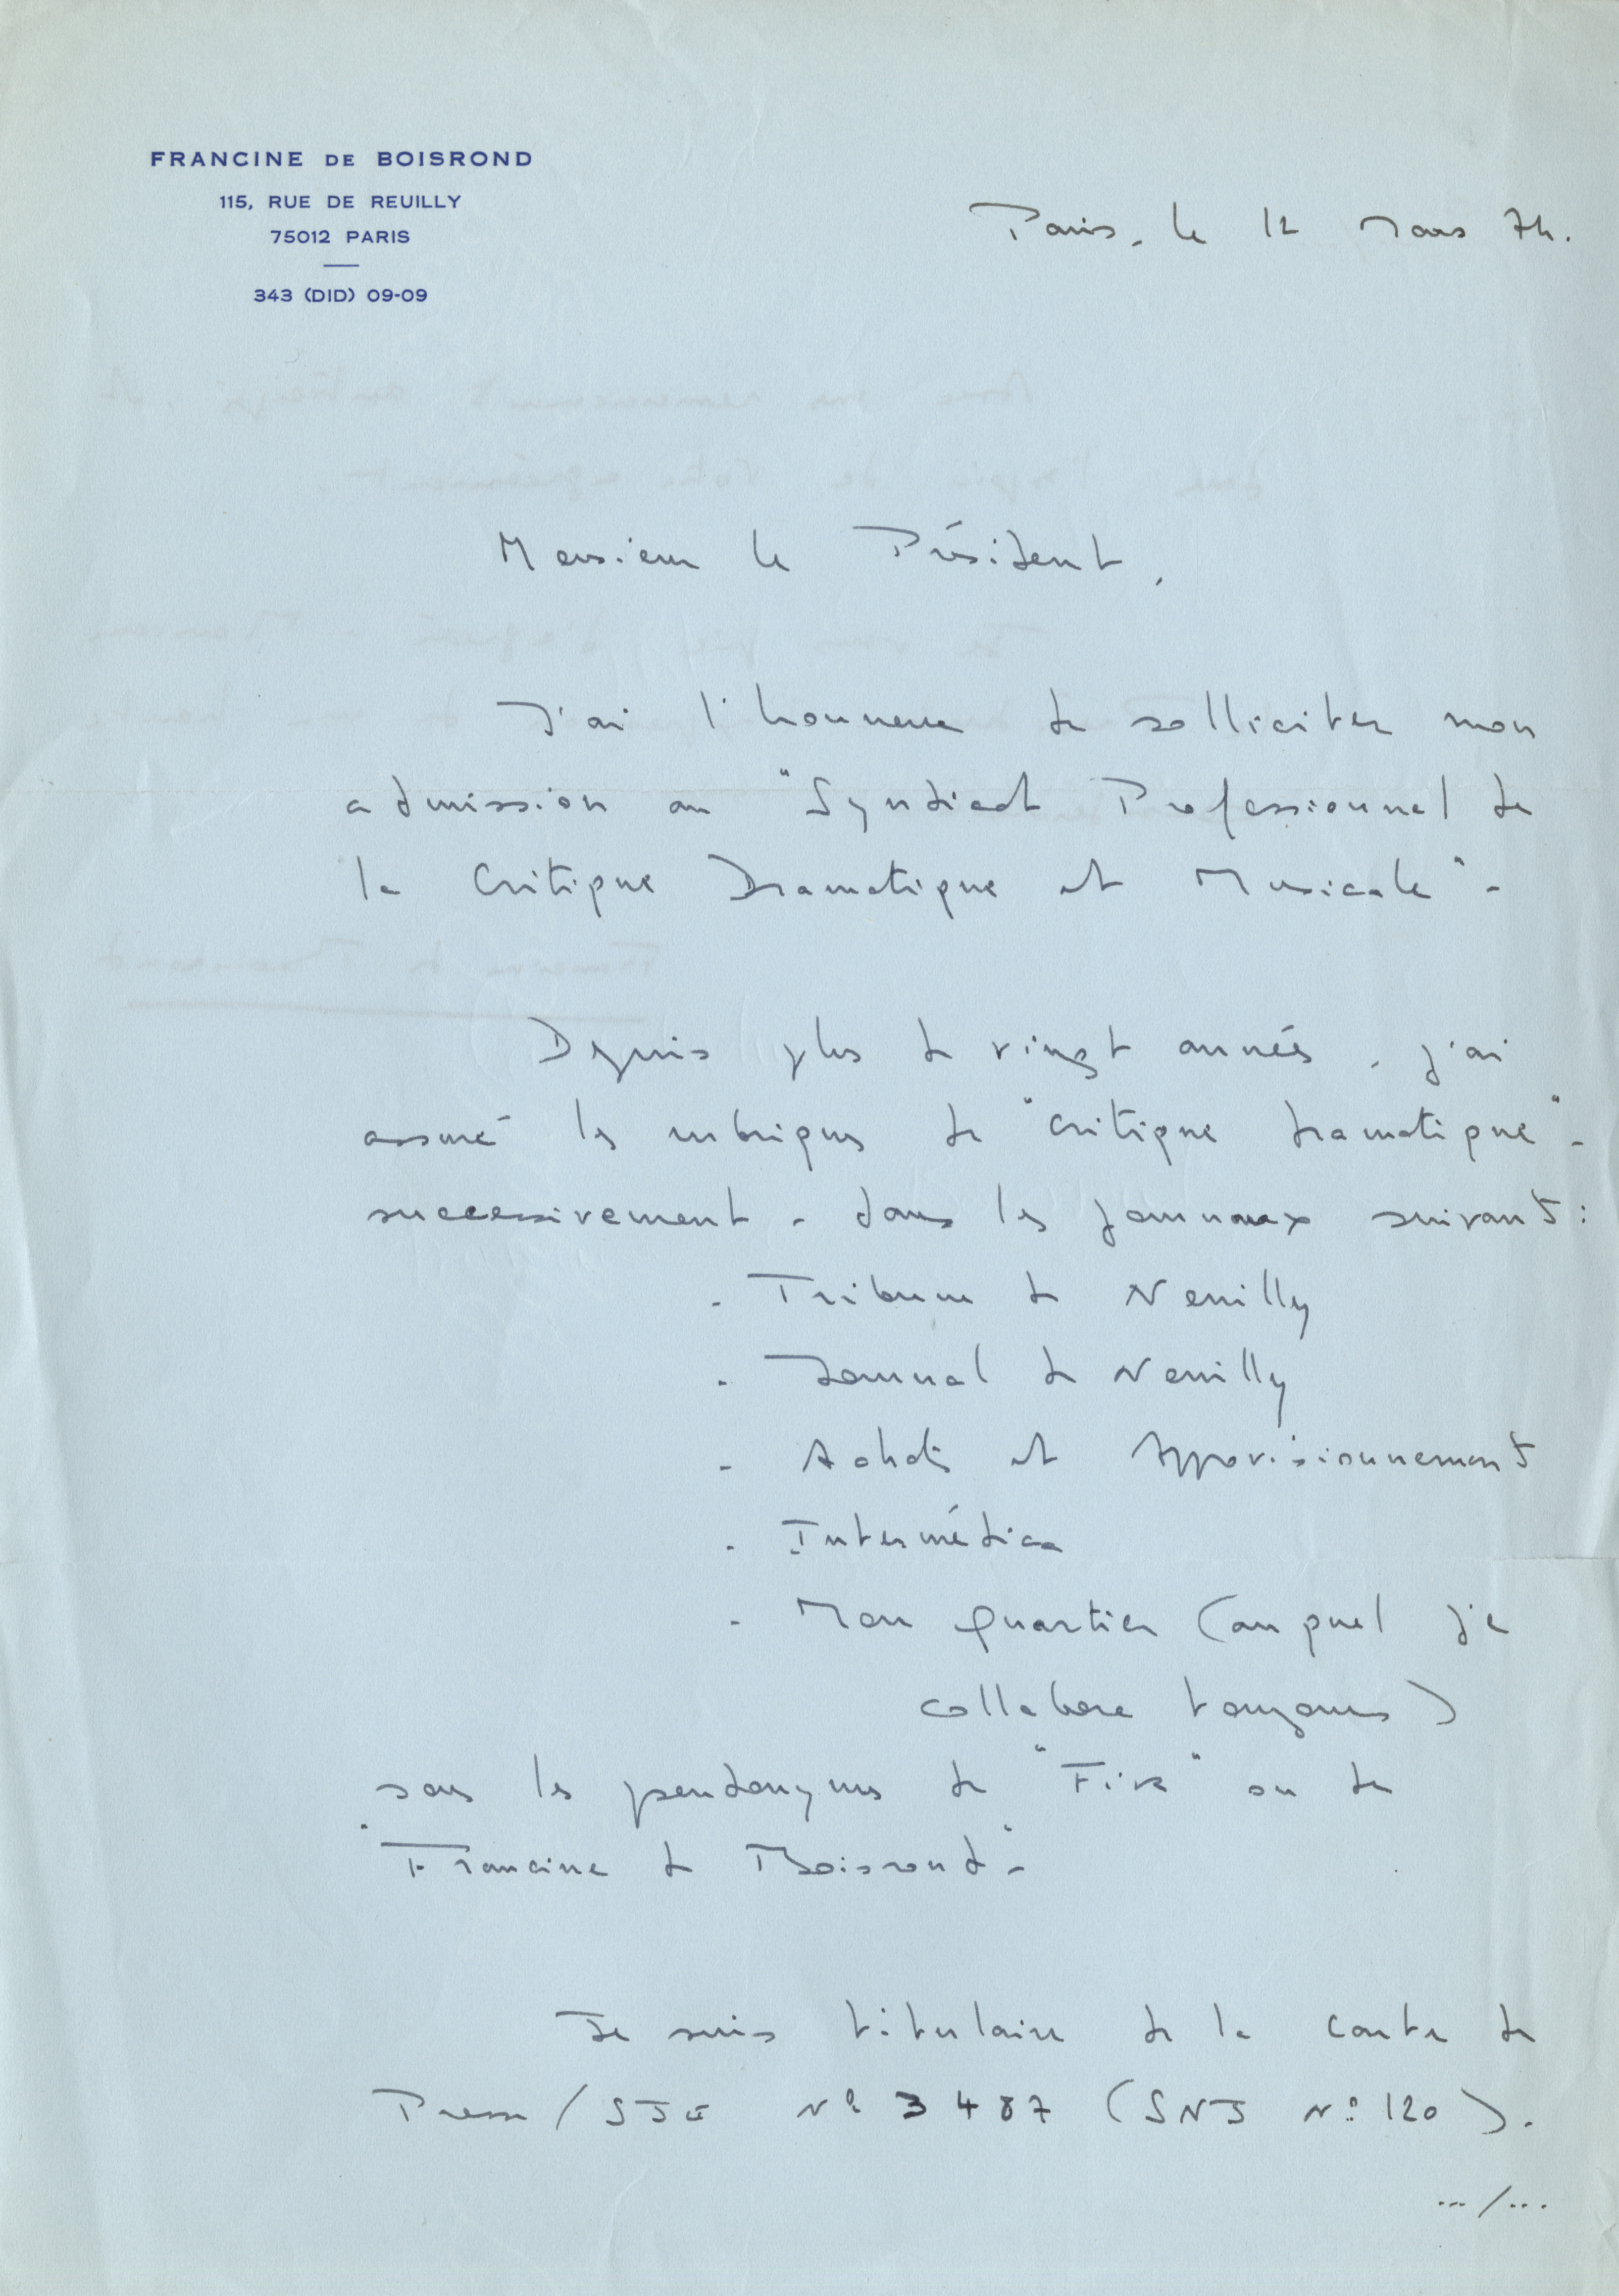 FRANCINE DE BOISROND
115, RUE DE REUILLY
75012 PARIS
343 (DID) 09-09
Paris, le 12 Mars 74.
Monsieur le Président,
J'ai l'honneur de solliciter mon
admission au "Syndicat Professionnel de
la Critique Dramatique et Musicale" -
Depuis plus de vingt années, j'ai
assuré les rubriques de "critique dramatique" -
successivement - dans les journaux suivants :
- Tribune de Neuilly
- Journal de Neuilly
- Achats et Approvisionnements
- Intermédica
- Mon Quartier (auquel je
collabore toujours)
sous les pseudonymes de "Five" ou de
"Francine de Boisrond" -
Je suis titulaire de la carte de
Presse / SJE N° 3487 (SNJ N° 120).
.../...